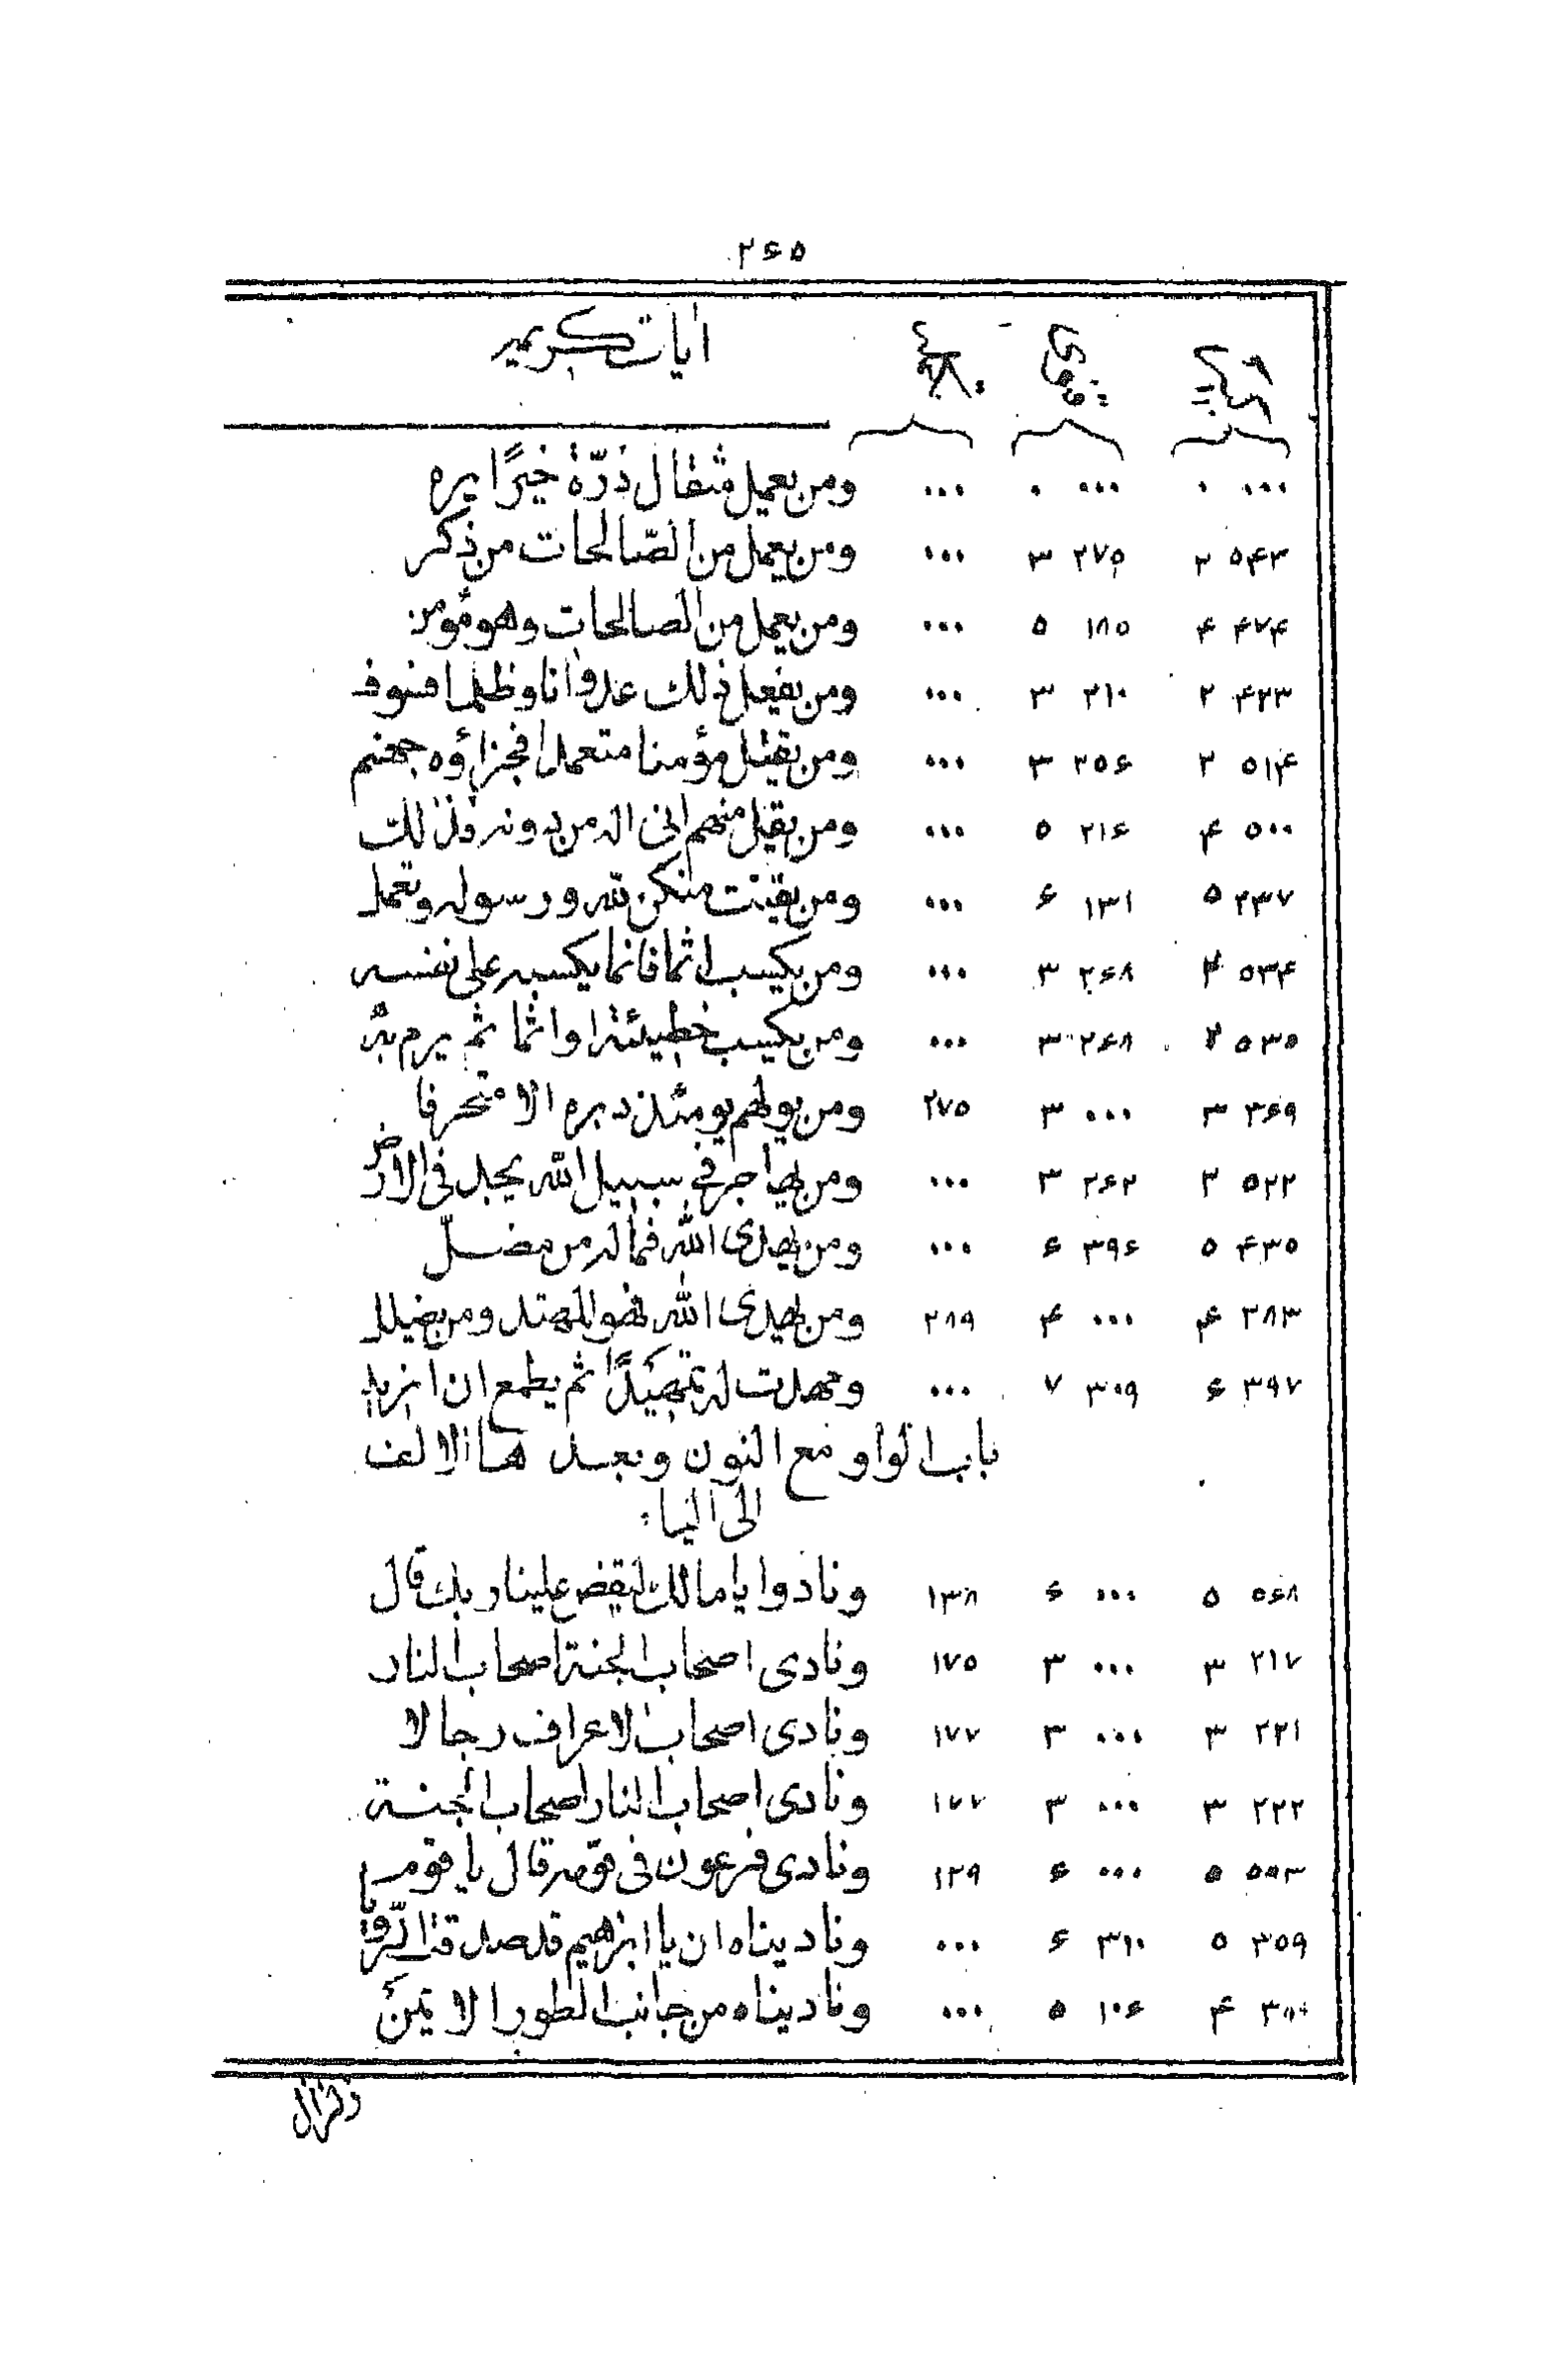 ۲۶۵
آیات کریمه
۰۰۰ ۰ ۰۰۰ ۰ ۰۰۰ ومن یعمل مثقال ذرّة خیرًا یره
۵۴۳ ۲ ۲۷۵ ۳ ۰۰۰ ومن یعمل من الصّالحات من ذکر
۴۷۴ ۴ ۱۸۵ ۵ ۰۰۰ ومن یعمل من الصالحات وهو مؤمن
۴۲۳ ۲ ۲۱۰ ۳ ۰۰۰ ومن یفعل ذلك عدوانا وظلما فسوف
۵۱۴ ۲ ۲۵۶ ۳ ۰۰۰ ومن یقتل مؤمنا متعمدا فجزاؤه جهنم
۵۰۰ ۴ ۲۱۶ ۵ ۰۰۰ ومن یقل منهم انی اله من دونه فذلك
۲۳۷ ۵ ۱۳۱ ۶ ۰۰۰ ومن یقنت منکن لله ورسوله وتعمل
۵۳۴ ۲ ۲۶۸ ۳ ۰۰۰ ومن یکسب اثما فانما یکسبه علی نفسه
۵۳۵ ۲ ۲۶۸ ۳ ۰۰۰ ومن یکسب خطیئة او اثما ثم یرم به
۳۶۹ ۳ ۰۰۰ ۳ ۲۷۵ ومن یولهم یومئذ دبره الا متحرفا
۵۲۲ ۲ ۲۶۲ ۳ ۰۰۰ ومن یهاجر فی سبیل الله یجد فی الارض
۴۳۵ ۵ ۳۹۶ ۶ ۰۰۰ ومن یهدی الله فماله من مضلّ
۲۸۳ ۴ ۰۰۰ ۴ ۲۸۹ ومن یهدی الله فهو المهتد ومن یضلل
۳۹۷ ۶ ۳۰۹ ۷ ۰۰۰ ومهدت له تمهیدًا ثم یطمع ان ازید
باب الواو مع النون وبعدها الالف
الی الیاء
۵۶۸ ۵ ۰۰۰ ۶ ۱۳۸ ونادوا یا مالك لیقض علینا ربك قال
۲۱۷ ۳ ۰۰۰ ۳ ۱۷۵ ونادی اصحاب الجنة اصحاب النار
۲۲۱ ۳ ۰۰۰ ۳ ۱۷۷ ونادی اصحاب الاعراف رجالا
۲۲۲ ۳ ۰۰۰ ۳ ۱۷۷ ونادی اصحاب النار اصحاب الجنة
۵۵۳ ۵ ۰۰۰ ۶ ۱۲۹ ونادی فرعون فی قومه قال یا قوم
۳۵۹ ۵ ۳۱۰ ۶ ۰۰۰ ونادیناه ان یا ابرهیم قد صدقت الرّؤیا
۴ ۱۰۶ ۵ ۰۰۰ ونادیناه من جانب الطور الایمن